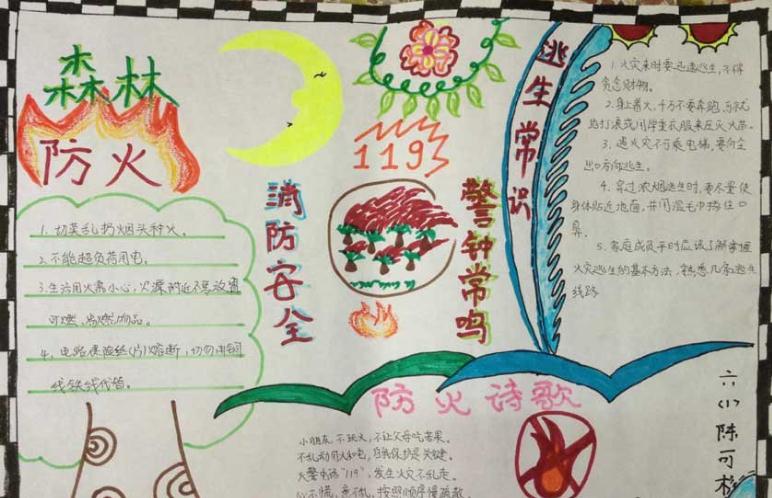 森林
防火
1. 切莫乱扔烟头种火。
2. 不能超负荷用电。
3. 生活用火需小心，火源附近不要放置
可燃、易燃物品。
4. 电路保险丝(片)熔断，切勿用铜
线铁线代替。
消防安全
119
警钟常鸣
逃生常识
1. 火灾来时要迅速逃生，不得
贪恋财物。
2. 身上着火，千万不要奔跑，可就
地打滚或用厚重衣服来压灭火苗。
3. 遇火灾不可乘电梯，要向安全
出口方向逃生。
4. 穿过浓烟逃生时，要尽量使
身体贴近地面，并用湿毛巾捂住口
鼻。
5. 家庭成员平时应该了解掌握
火灾逃生的基本方法，熟悉几条逃生
线路
防火诗歌
小朋友，不玩火，不让父母吃苦果。
不乱动用火和电，自我保护是关键。
火警电话“119”，发生火灾不乱走。
按照顺序慢疏散
六(1)陈可